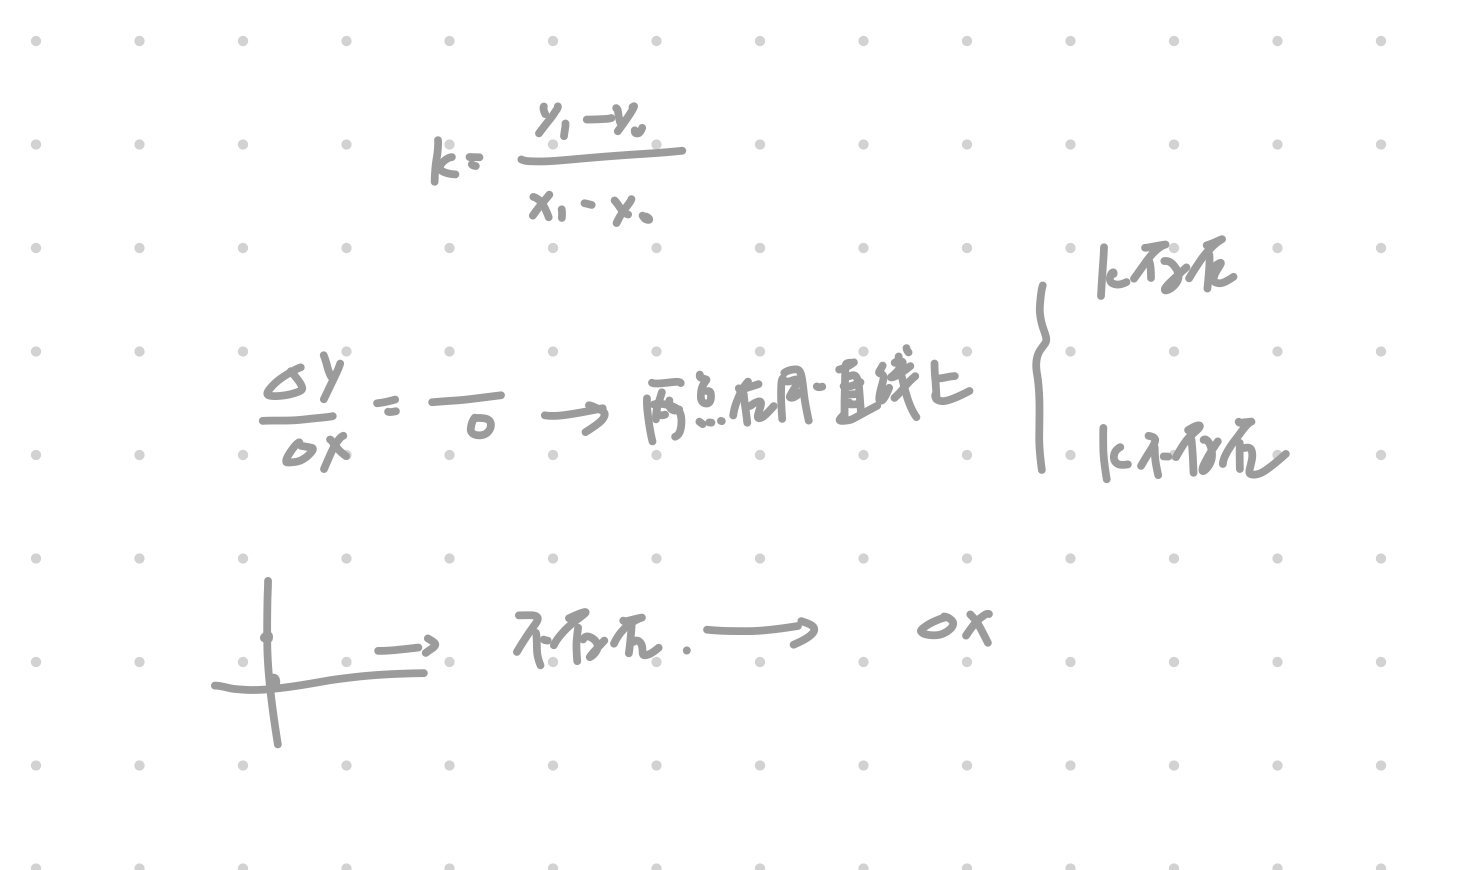 k = (y₁ - y₀) / (x₁ - x₀)
k存在
Δy/Δx = /0 → 两点在同一直线上 {
k不存在
→ 不存在. → Δx